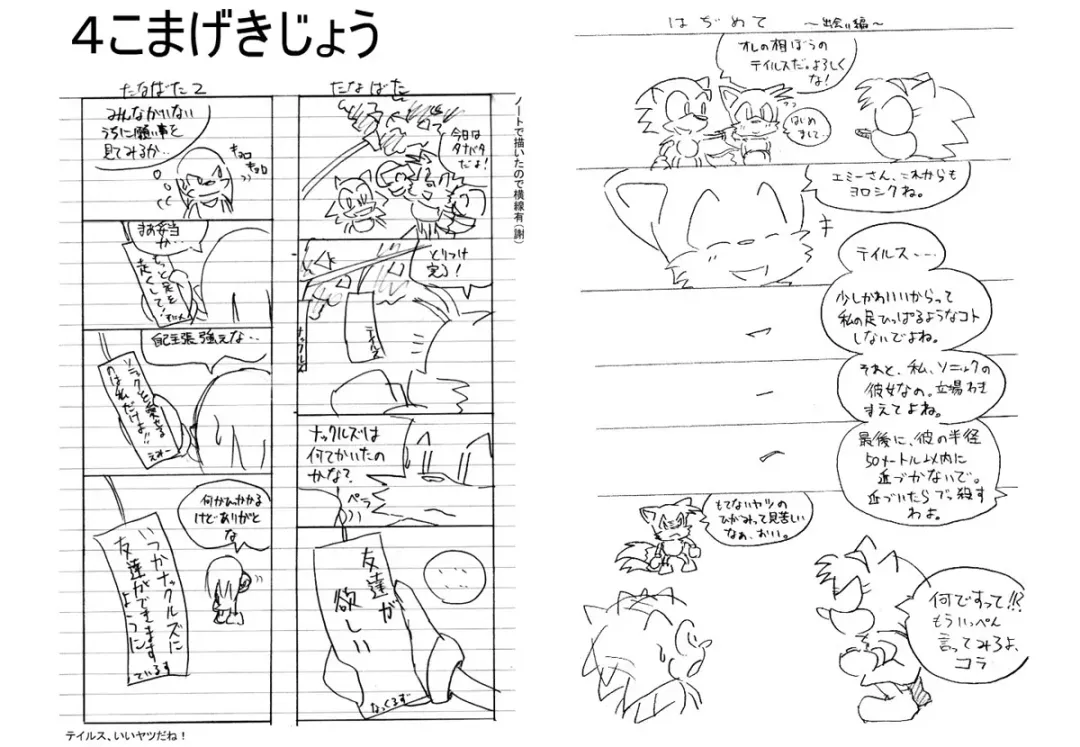 4こまげきじょう
たなばた
今日は
タナバタ
だよ！
とりつけ
完了！
テイルス
ナックルズ
ナックルズは
何てかいたの
かな？
ペラ
……
友達が
欲しい
なっくるず
ノートで描いたので横線有(謝)
たなばた2
みんながいない
うちに願い事を
見てみるか…
キョロ
キョロ
まお弁当
か…
もっと足を
速くして！
自己主張強えな…
ソニックを愛せる
のは私だけよ!!
えみー
何かひっかかる
けどありがと
な
いつかナックルズに
友達ができます
ように
ているす
テイルス、いいヤツだね！
はじめて ～出会い編～
オレの相ぼうの
テイルスだ。よろしく
な！
はじめ
まして…
エミーさん、これからも
ヨロシクね。
テイルス……
少しかわいいからって
私の足ひっぱるようなコト
しないでよね。
そぉと、私、ソニックの
彼女なの。立場わき
まえてよね。
最後に、彼の半径
50メートル以内に
近づかないで。
近づいたらブッ殺す
わよ。
もてないヤツの
ひがみって見苦しい
なぁ、おい。
何ですって!!?
もういっぺん
言ってみろよ、
コラ